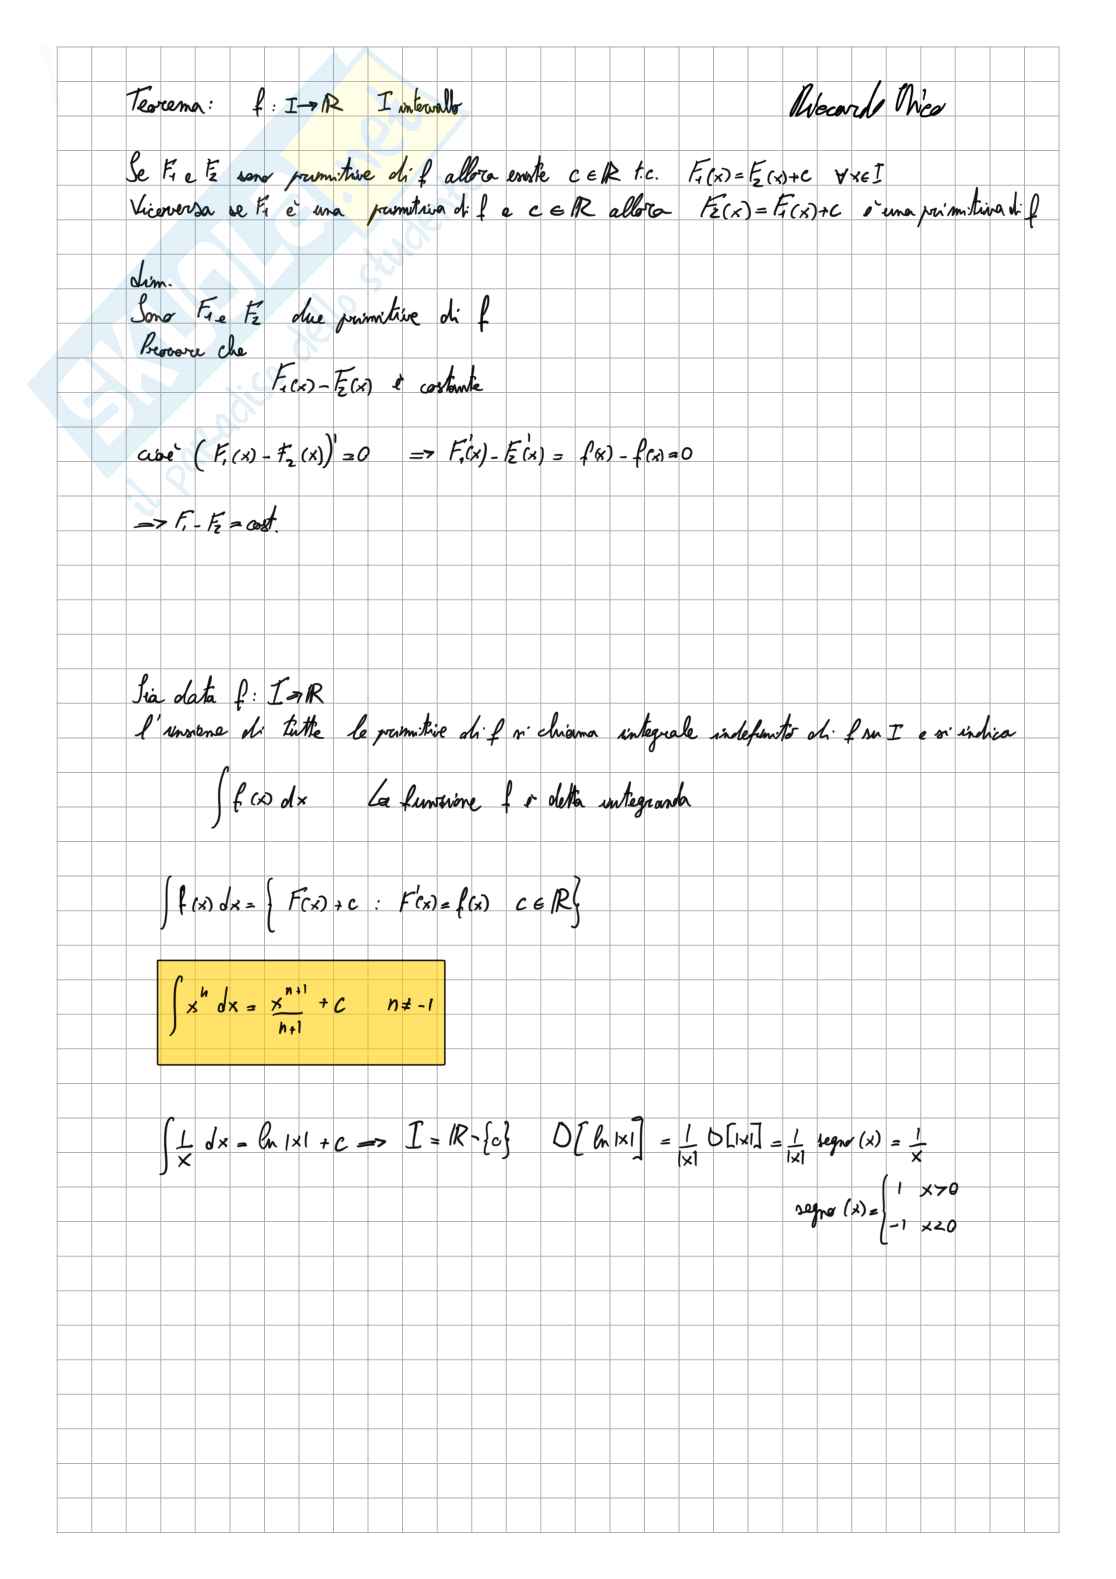 Teorema: f: I→ℝ I intervallo
Riccardo Chico
Se F₁ e F₂ sono primitive di f allora esiste c∈ℝ t.c. F₁(x)=F₂(x)+c ∀x∈I
Viceversa se F₁ è una primitiva di f e c∈ℝ allora F₂(x)=F₁(x)+c è una primitiva di f
dim.
Sono F₁ e F₂ due primitive di f
Provare che
F₁(x)-F₂(x) è costante
cioè (F₁(x)-F₂(x))'=0 => F₁'(x)-F₂'(x) = f(x)-f(x)=0
=> F₁-F₂=cost.
Sia data f: I→ℝ
l'insieme di tutte le primitive di f si chiama integrale indefinito di f su I e si indica
∫f(x)dx La funzione f è detta integranda
∫f(x)dx={F(x)+c : F'(x)=f(x) c∈ℝ}
∫xⁿ dx = xⁿ⁺¹/(n+1) + c n≠-1
∫1/x dx = ln|x|+c => I=ℝ-{0} D[ln|x|] = 1/|x| D[|x|] = 1/|x| segno(x) = 1/x
segno(x)={1 x>0
-1 x<0
SKUOLA.net
il paradiso dello studente